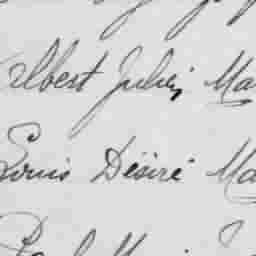 Albert Julien Ma
Louis Désiré Ma